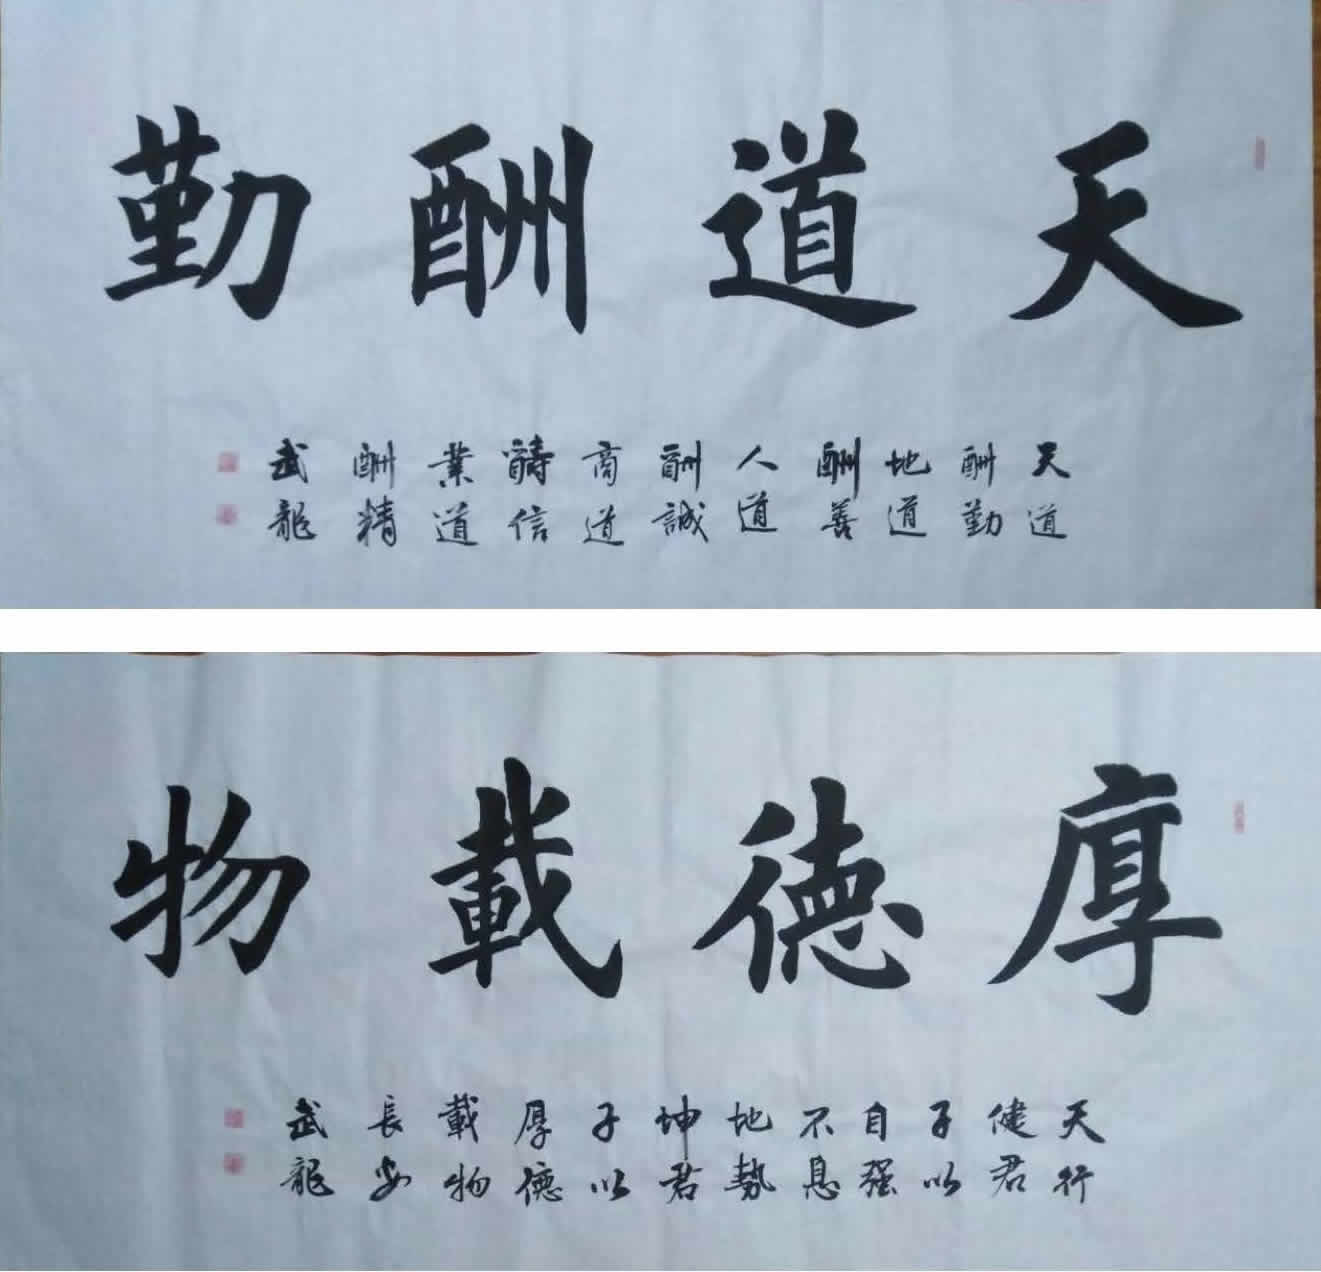 天道酬勤
天道
酬勤
地道
酬善
人道
酬誠
商道
酬信
業道
酬精
武龍
厚德載物
天行
健君
子以
自强
不息
地勢
坤君
子以
厚德
載物
長安
武龍